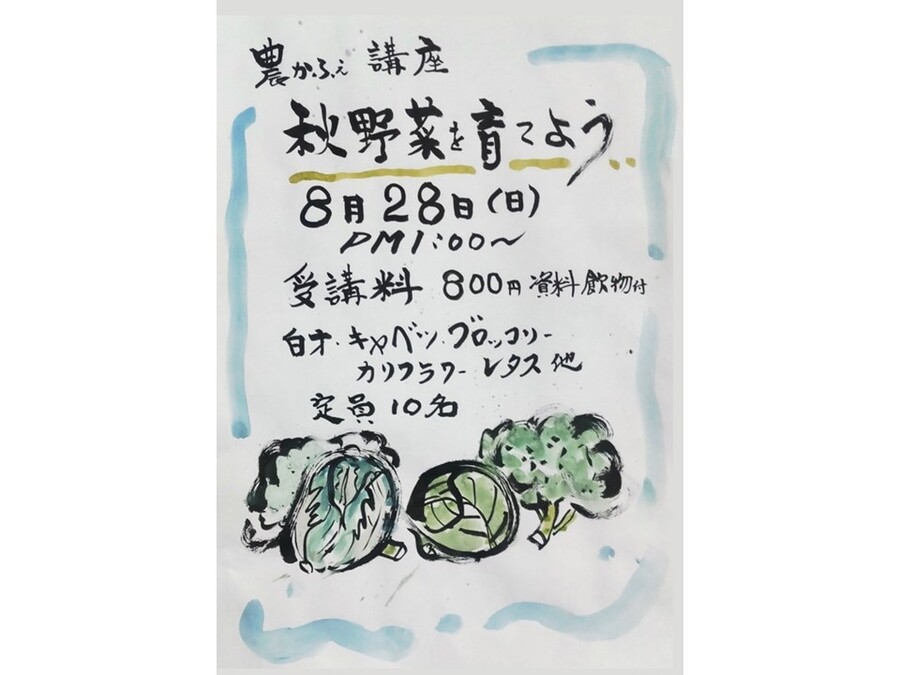 農かふぇ 講座
秋野菜を育てよう
8月28日(日)
PM1:00〜
受講料 800円 資料飲物付
白才・キャベツ・ブロッコリー
カリフラワー レタス 他
定員10名